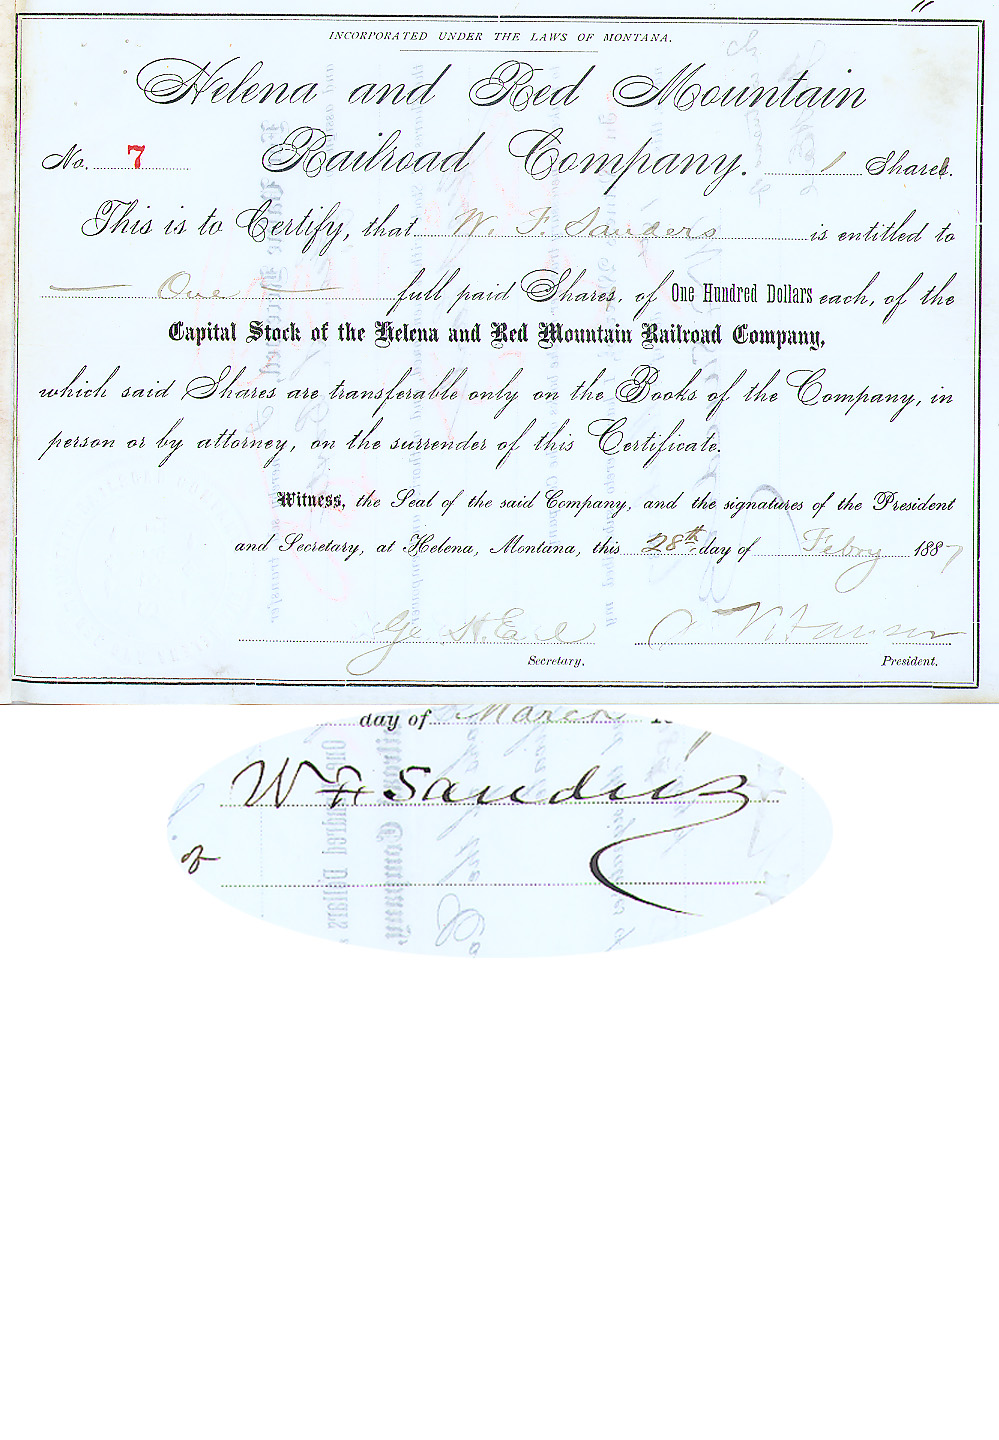 INCORPORATED UNDER THE LAWS OF MONTANA.
Helena and Red Mountain
No. 7 Railroad Company. 1 Share.
This is to Certify, that W. F. Sanders is entitled to
One full paid Shares, of One Hundred Dollars each, of the
Capital Stock of the Helena and Red Mountain Railroad Company,
which said Shares are transferable only on the Books of the Company, in
person or by attorney, on the surrender of this Certificate.
Witness, the Seal of the said Company, and the signatures of the President
and Secretary, at Helena, Montana, this 28th day of Febry 1887
Secretary. President.
day of March
W F Sanders
of